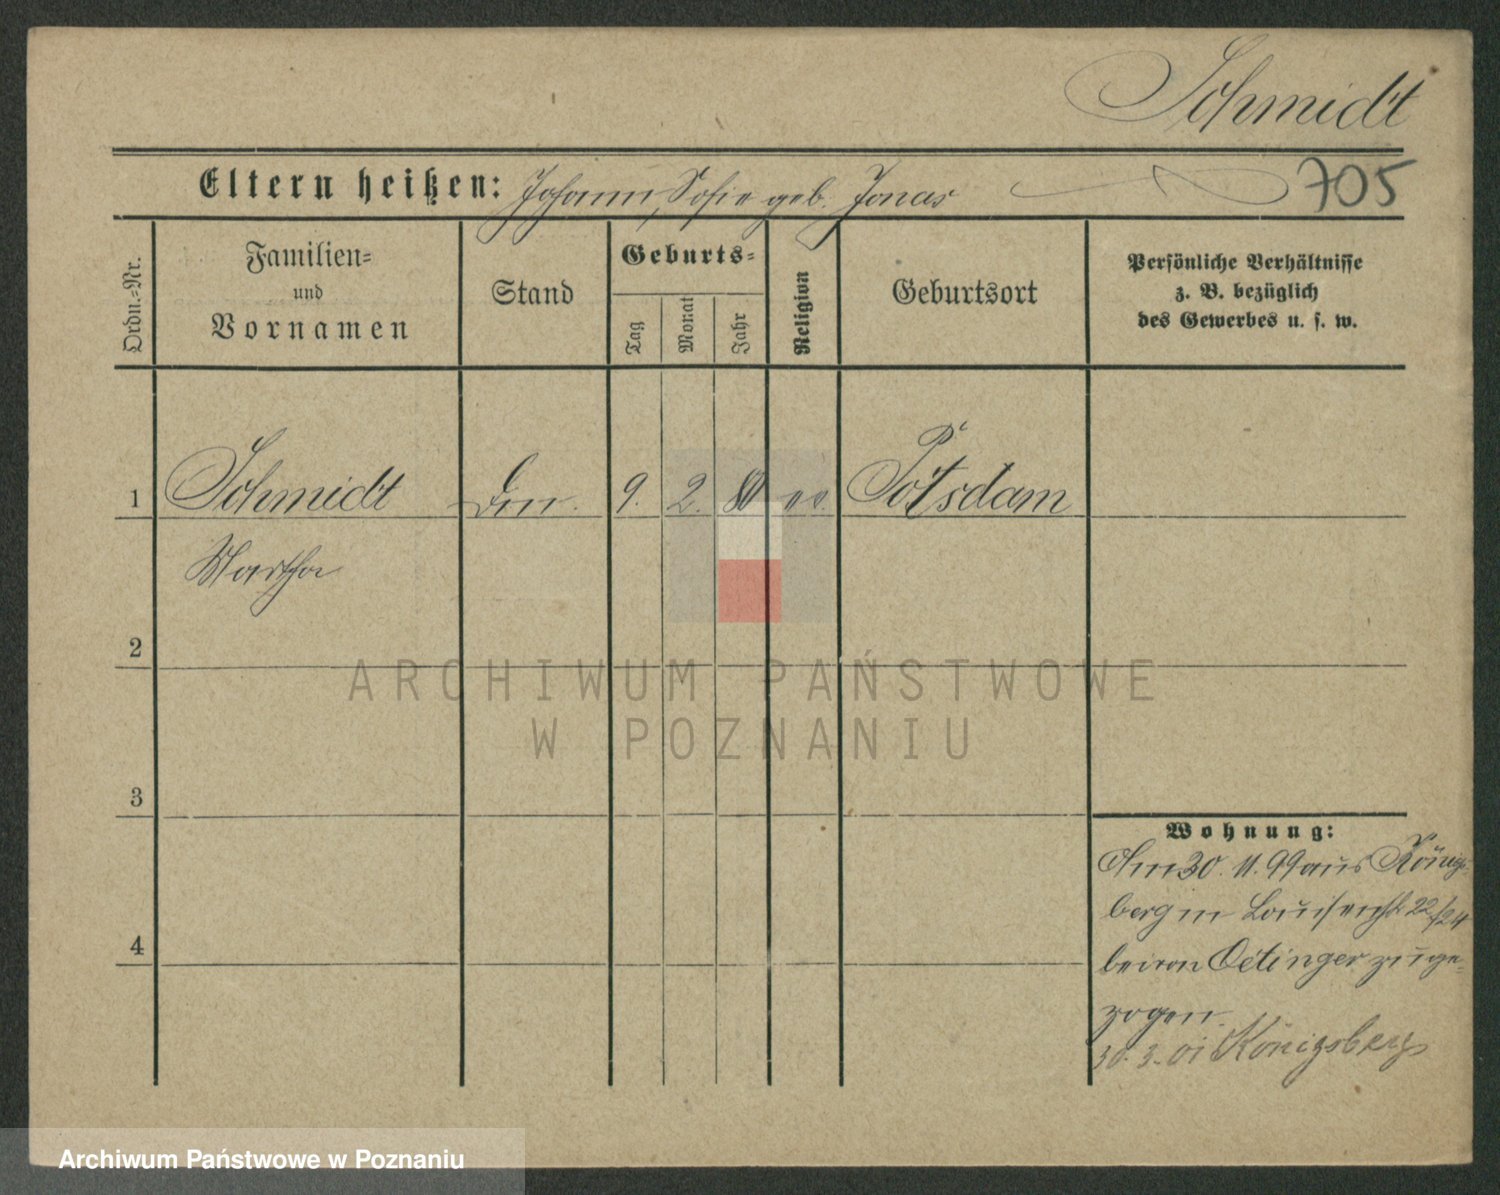 Schmidt
Eltern heißen: Johann, Sofie geb. Jonas
705
Ordn.=Nr.
Familien=
und
Vornamen
Stand
Geburts=
Tag
Monat
Jahr
Religion
Geburtsort
Persönliche Verhältnisse
z. B. bezüglich
des Gewerbes u. s. w.
1 Schmidt 9. 2. 80 Potsdam
Martha
2
3
4
Wohnung:
Am 30. 11. 99 aus Königs-
berg in Louisenstr. 22/24
bei von Oetinger zuge-
zogen.
30. 3. 01 Königsberg
ARCHIWUM PAŃSTWOWE
W POZNANIU
Archiwum Państwowe w Poznaniu